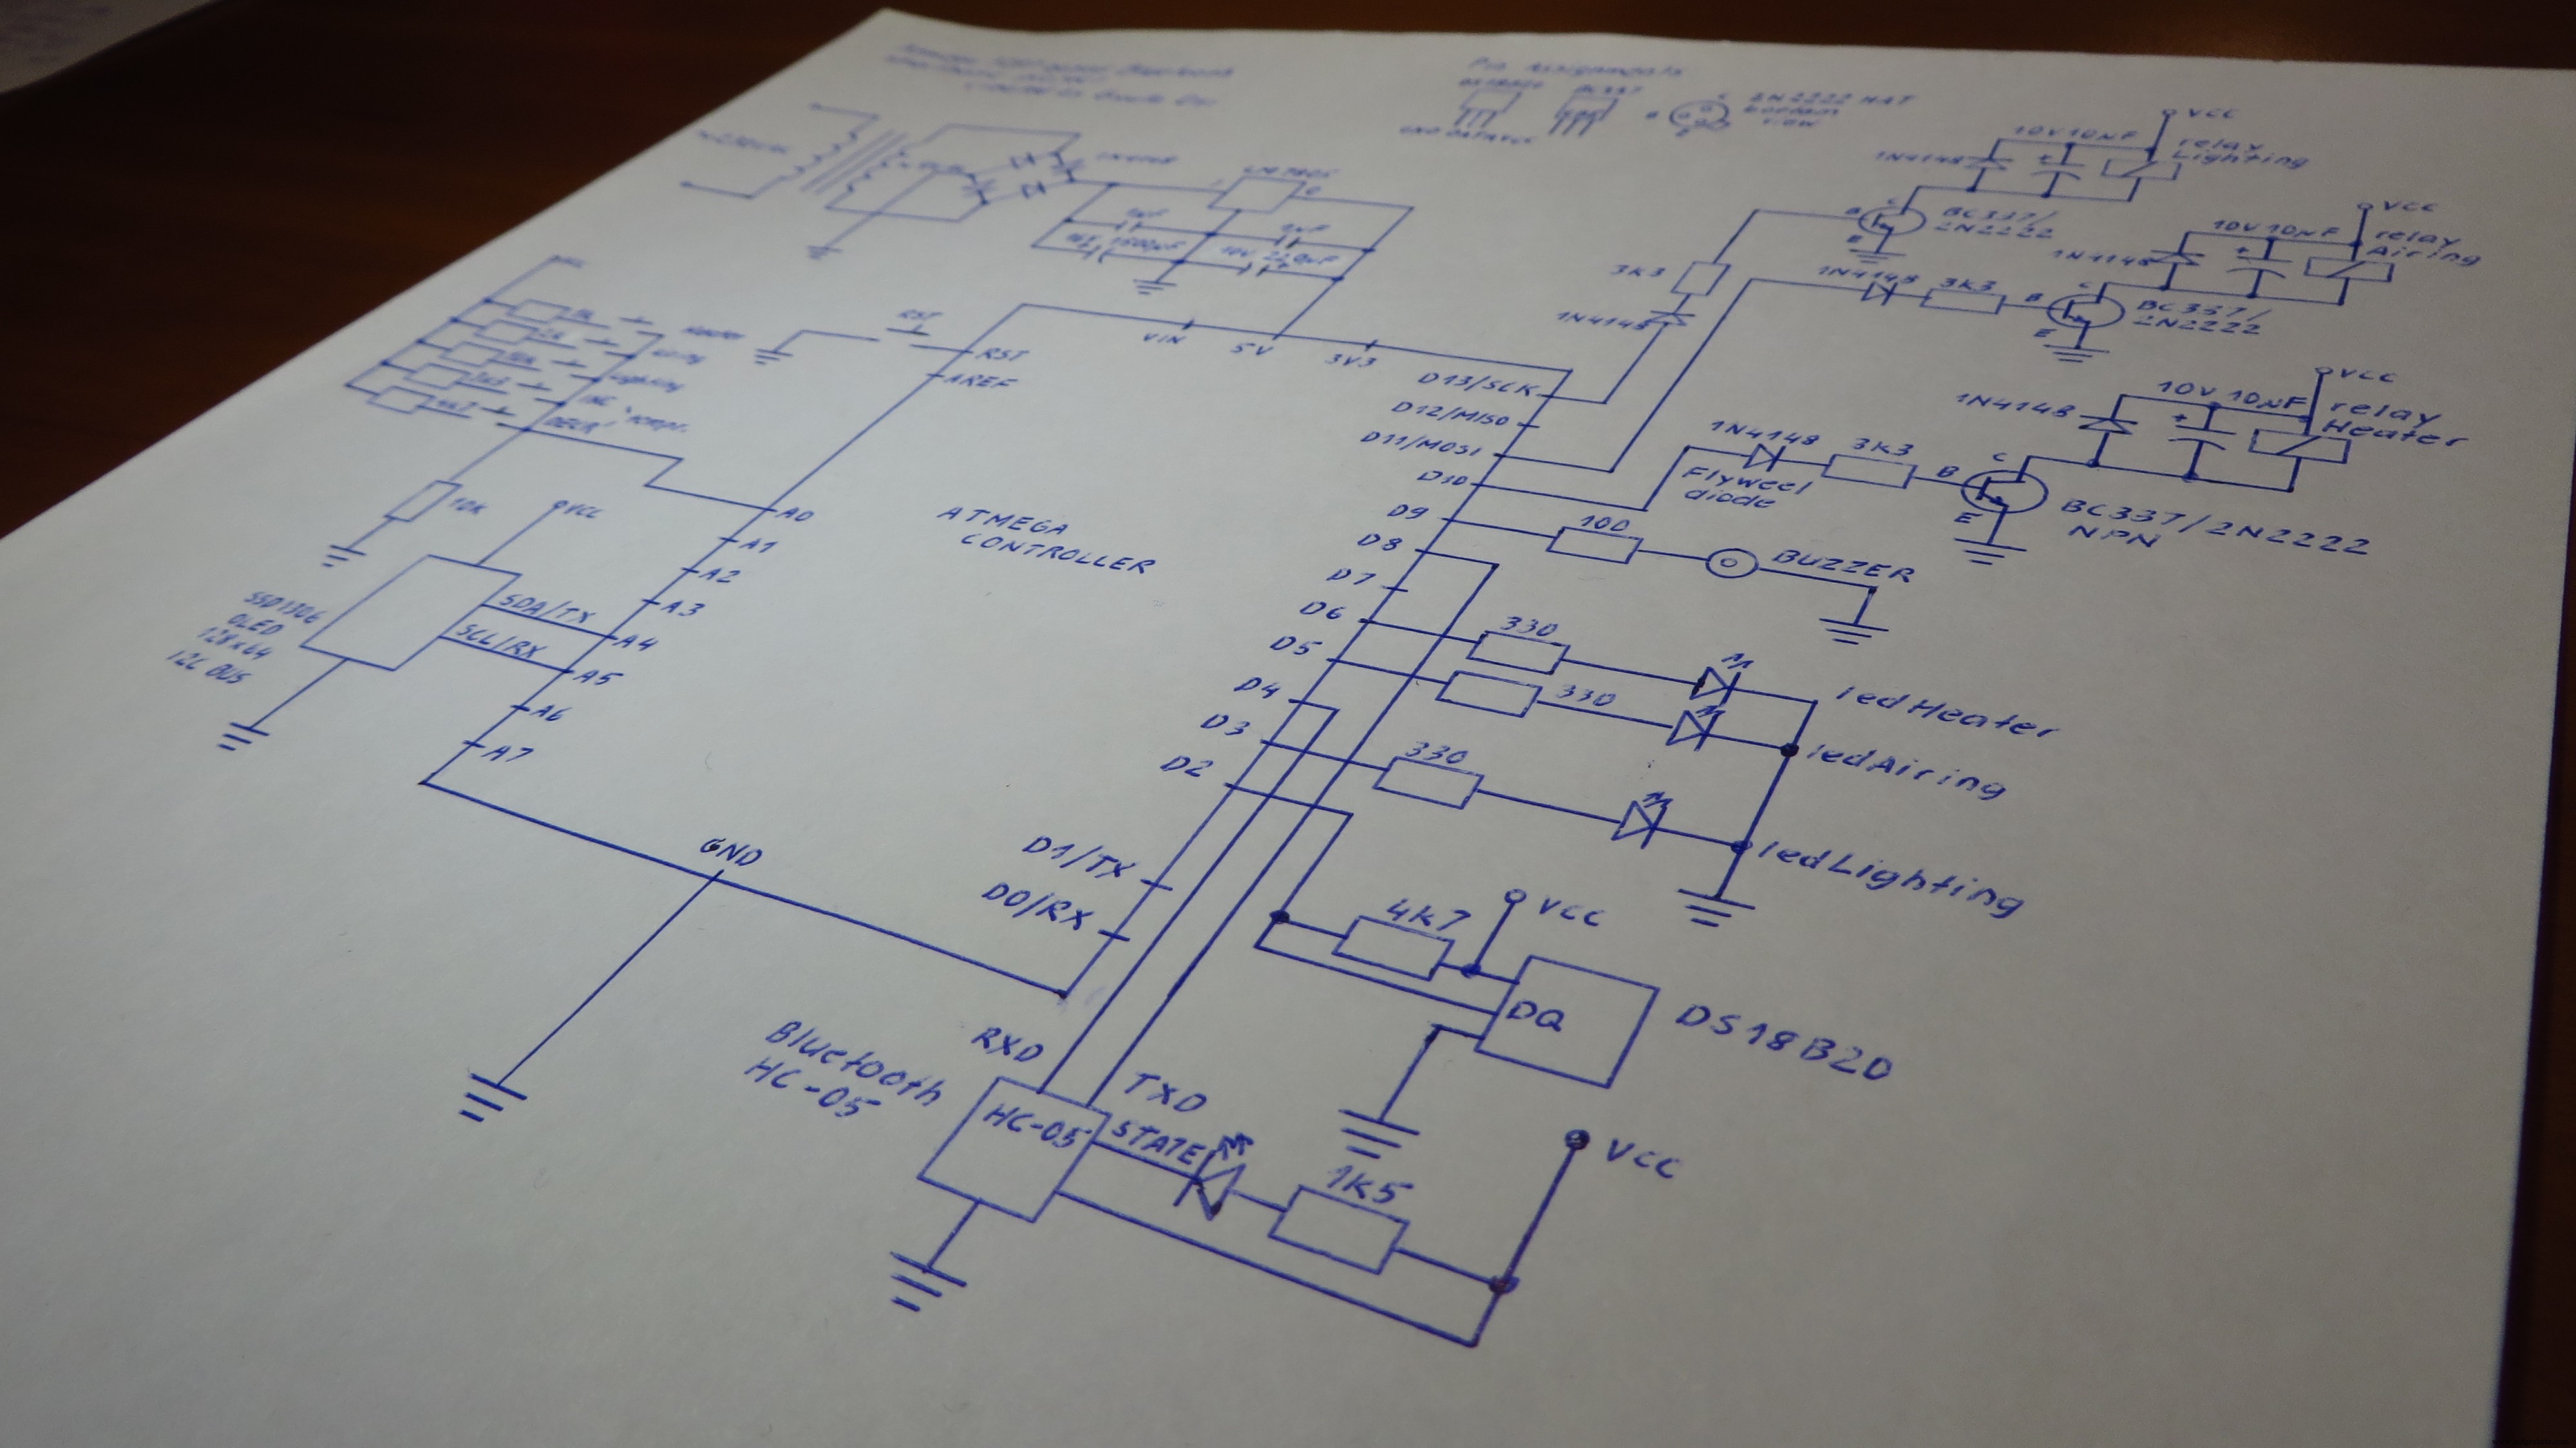 Pin Assignments
BC337
2N2222 HAT
bottom
view
GND DATA VCC
VCC
10V 10µF
relay
Lighting
1N4148
C
B
E
BC337/
2N2222
3K3
1N4148
VCC
10V 10µF
relay
Airing
1N4148
1N4148
3K3
B
C
E
BC337/
2N2222
VCC
10V 10µF
relay
Heater
1N4148
1N4148
Flyweel
diode
3K3
B
C
E
BC337/2N2222
NPN
LM7805
1N4148
RST
RST
AREF
VIN
5V
3V3
D13/SCK
D12/MISO
D11/MOSI
D10
D9
D8
D7
D6
D5
D4
D3
D2
D1/TX
D0/RX
Heater
Airing
Lighting
INC
DECR
tempr.
10K
VCC
A0
A1
A2
A3
A4
A5
A6
A7
GND
ATMEGA
CONTROLLER
SSD1306
OLED
128x64
I2C BUS
SDA/TX
SCL/RX
100
BUZZER
330
ledHeater
330
ledAiring
330
ledLighting
4K7
VCC
DQ
DS18B20
Bluetooth
HC-05
RXD
TXD
HC-05
STATE
1K5
VCC